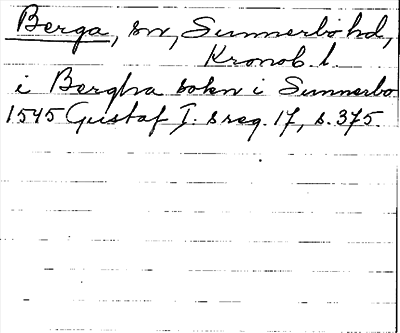 Berga, sn, Sunnerbo hd,
Kronob. l.
i Bergha sokn i Sunnerbo
1545 Gustaf I:s reg. 17, s. 375.